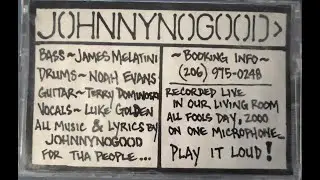 JOHNNYNOGOOD>
BASS~JAMES MELATINI
DRUMS~ NOAH EVANS
GUITAR~ TERRY DOMINOSKI
VOCALS~ LUKE GOLDEN
ALL MUSIC & LYRICS BY
JOHNNYNOGOOD
FOR THA PEOPLE...
~BOOKING INFO~
(206) 975-0248
RECORDED LIVE
IN OUR LIVING ROOM
ALL FOOLS DAY, 2000
ON ONE MICROPHONE...
PLAY IT LOUD!